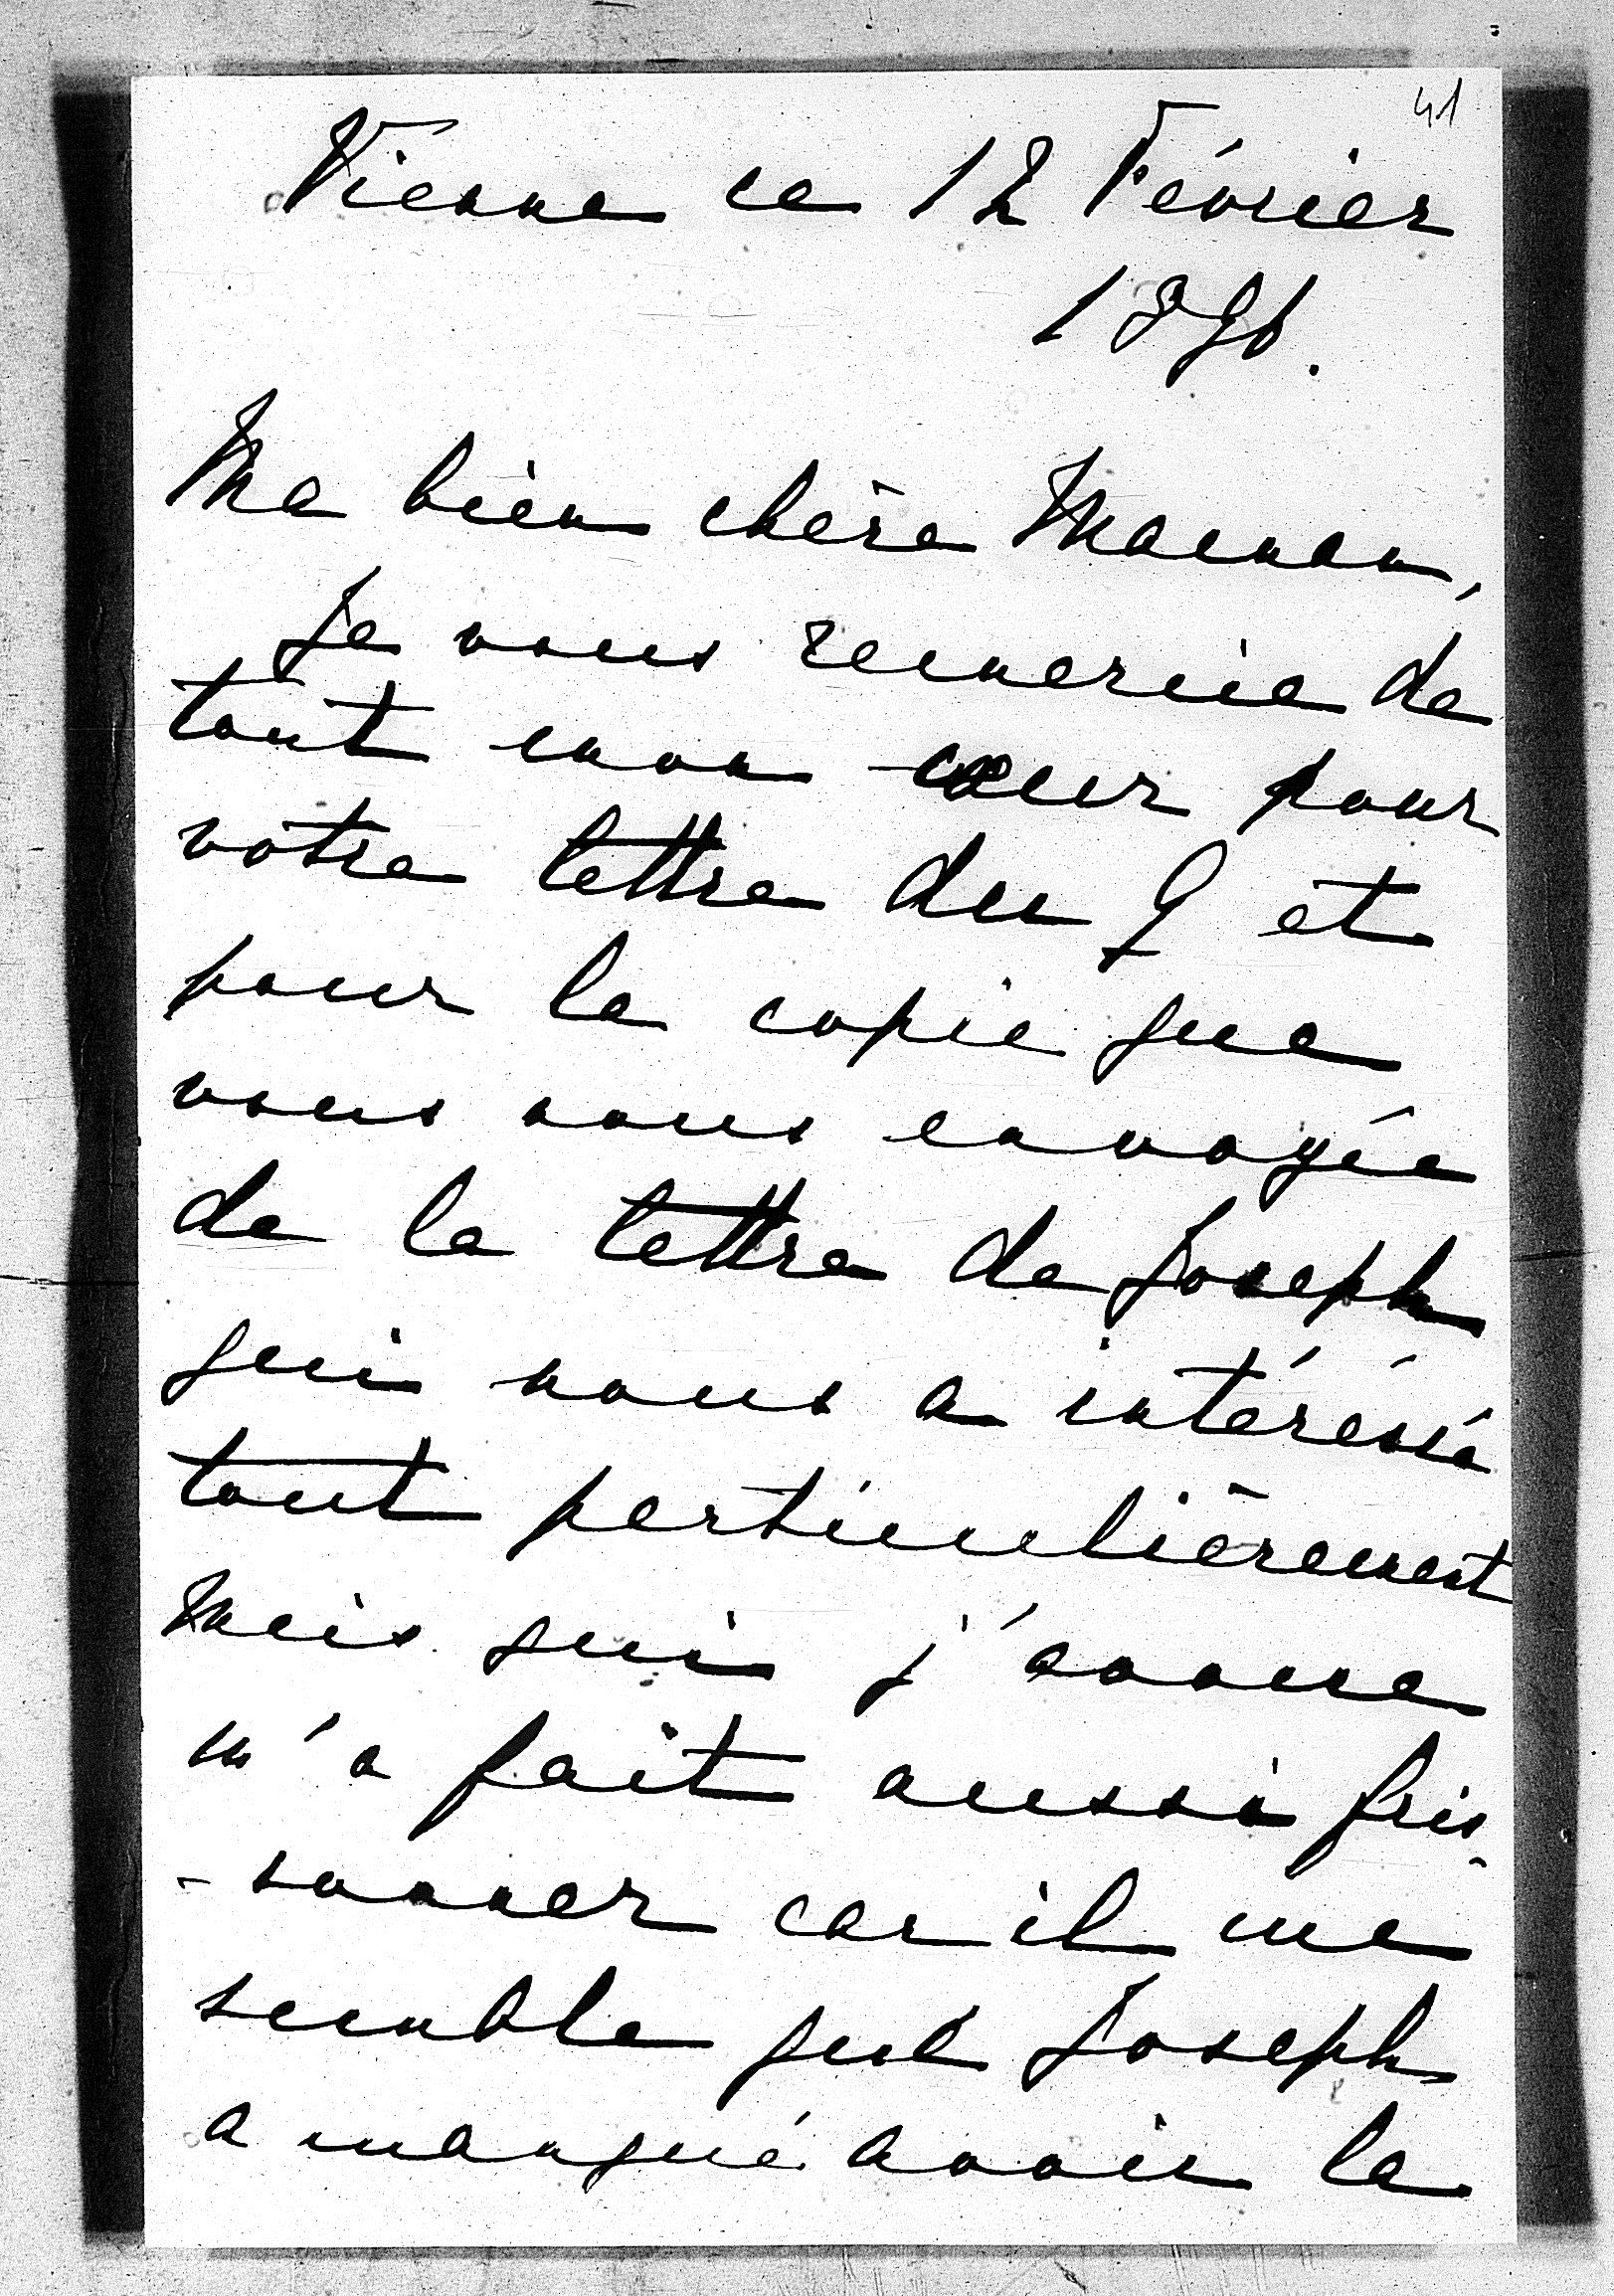 41
Vienne ce 12 Février
1896.
Ma bien chère Maman,
Je vous remercie de
tout mon cœur pour
votre lettre du 9 et
pour la copie que
vous nous envoyée
de la lettre de Joseph
qui nous a intéressé
tout particulièrement
mais qui j'avoue
m'a fait aussi fris
-sonner car il me
semble que Joseph
a manqué avoir la